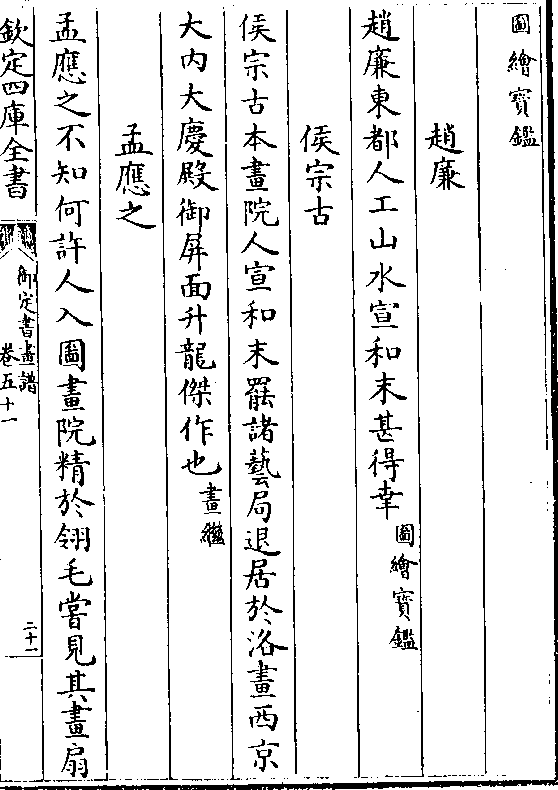 圖繪寶鑑
趙廉
趙廉東都人工山水宣和末甚得幸圖繪寶鑑
侯宗古
侯宗古本畫院人宣和末罷諸藝局退居於洛畫西京
大内大慶殿御屏面升龍傑作也畫繼
孟應之
孟應之不知何許人入圖畫院精於翎毛嘗見其畫扇
欽定四庫全書
御定書畫譜
卷五十一
二十一